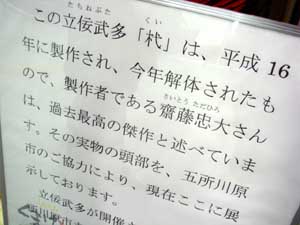 たちねぷた くい
この立佞武多「杙」は、平成16
年に製作され、今年解体されたも
さいとう ただひろ
ので、製作者である齋藤忠大さん
は、過去最高の傑作と述べていま
す。その実物の頭部を、五所川原
市のご協力により、現在ここに展
示しております。
立佞武多が開催